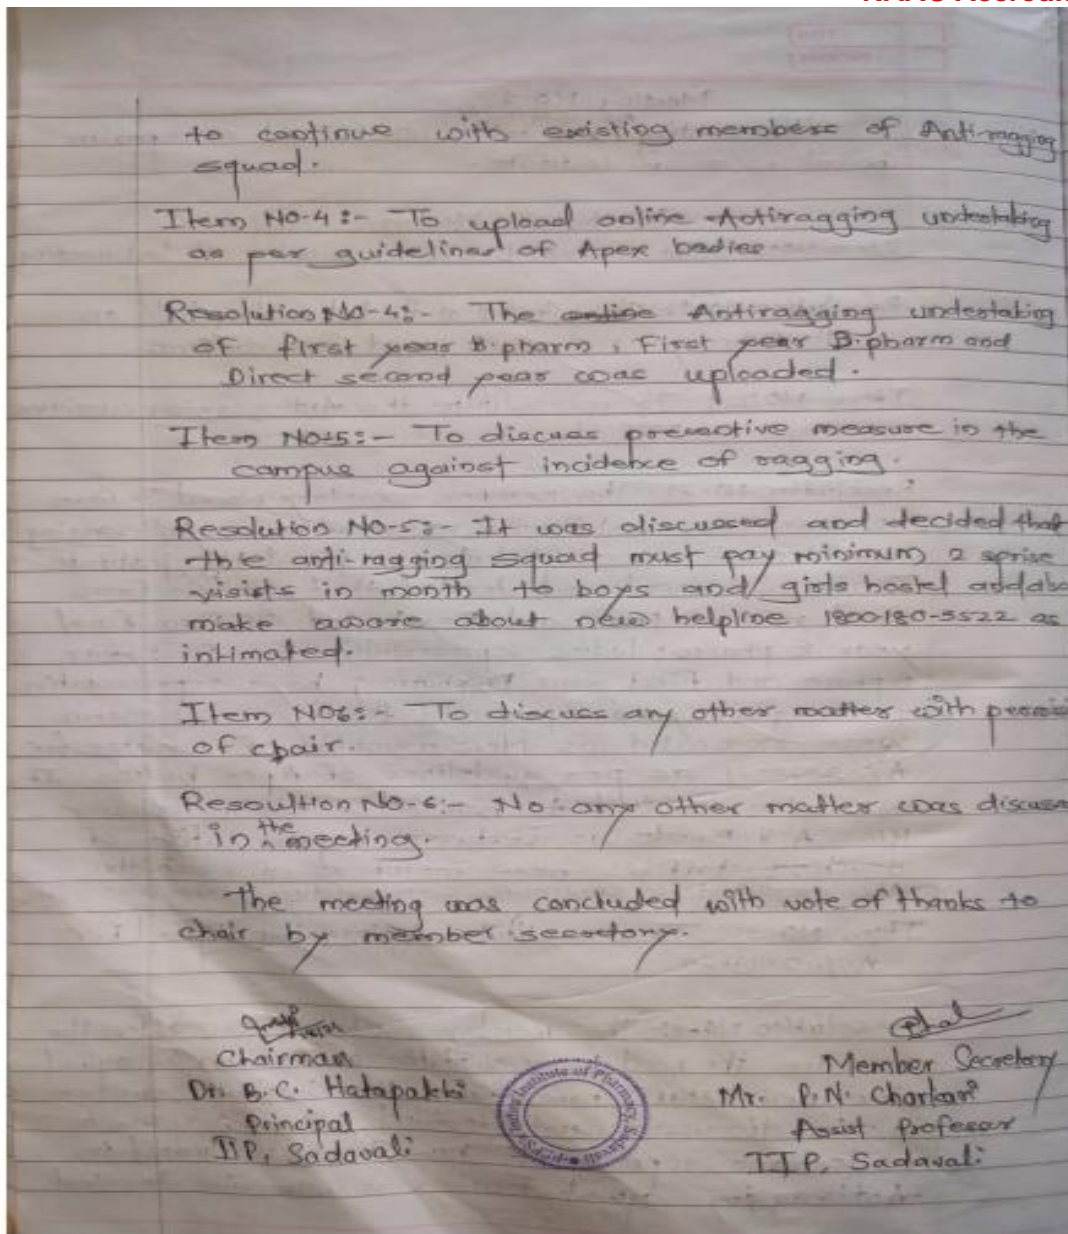 to continue with existing members of Anti-ragging
squad.
Item NO-4:- To upload online Antiragging undertaking
as per guidelines of Apex bodies
Resolution No-4:- The online Antiragging undertaking
of first year B.pharm, First year D.pharm and
Direct second year was uploaded.
Item No-5:- To discuss preventive measure in the
campus against incidence of ragging.
Resolution NO-5:- It was discussed and decided that
the anti-ragging squad must pay minimum 2 sprise
visists in month to boys and girls hostel
make aware about new helpline 1800-180-5522 as
intimated.
Item NO6:- To discuss any other matter with
of chair.
Resoultion No-6:- No any other matter was
in the meeting.
The meeting was concluded with vote of thanks to
chair by member secretory.
Chairman
Dr. B.C. Hatapakki
Principal
IIP, Sadavali
Institute of Pharmacy, Sadavali
Member Secretary
Mr. P.N. Charkari
Assist Professor
IIP, Sadavali